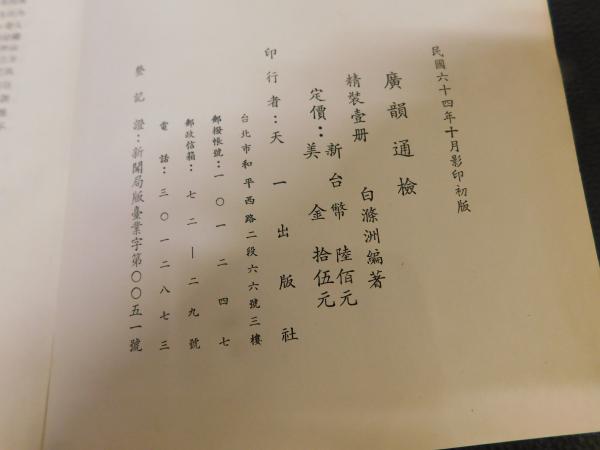 民國六十四年十月影印初版
廣韻通檢
白滌洲編著
精裝壹册
定價：新台幣陸佰元
美金拾伍元
印行者：天一出版社
台北市和平西路二段六六號三樓
郵撥帳號：一〇一二四七
郵政信箱：七二—二九號
電話：三〇一二八七三
登記證：新聞局版臺業字第〇〇五一號